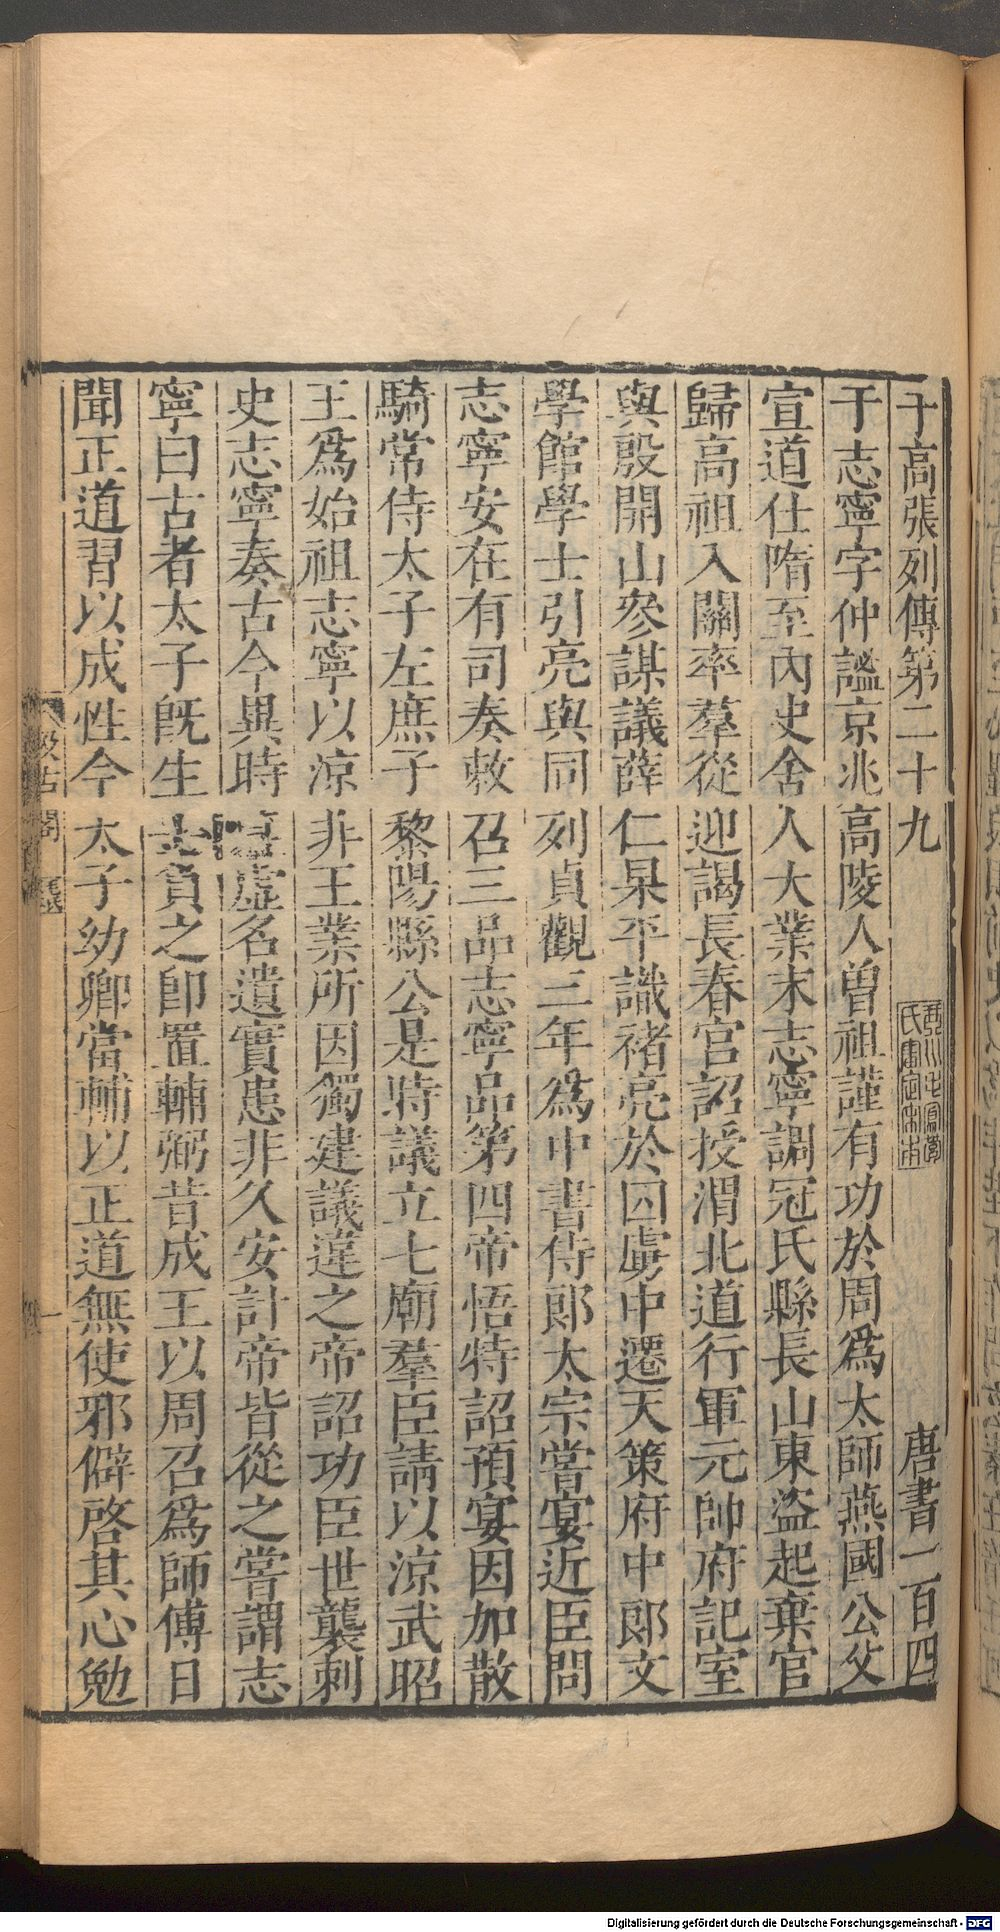 于高張列傳第二十九
唐書一百四
于志寧字仲謐京兆高陵人曾祖謹有功於周爲太師燕國公父
宣道仕隋至內史舍人大業末志寧調冠氏縣長山東盜起棄官
歸高祖入關率羣從迎謁長春宮詔授渭北道行軍元帥府記室
與殷開山參謀議薛仁杲平識褚亮於囚虜中遷天策府中郎文
學館學士引亮與同列貞觀三年爲中書侍郎太宗嘗宴近臣問
志寧安在有司奏敕召三品志寧品第四帝悟特詔預宴因加散
騎常侍太子左庶子黎陽縣公是時議立七廟羣臣請以涼武昭
王爲始祖志寧以涼非王業所因獨建議違之帝詔功臣世襲刺
史志寧奏古今異時虛名遺實恚非久安計帝皆從之嘗謂志
寧曰古者太子旣生士負之卽置輔弼昔成王以周召爲師傅日
聞正道習以成性今太子幼卿當輔以正道無使邪僻啓其心勉
汲古閣
毛氏
一
Digitalisierung gefördert durch die Deutsche Forschungsgemeinschaft - DFG